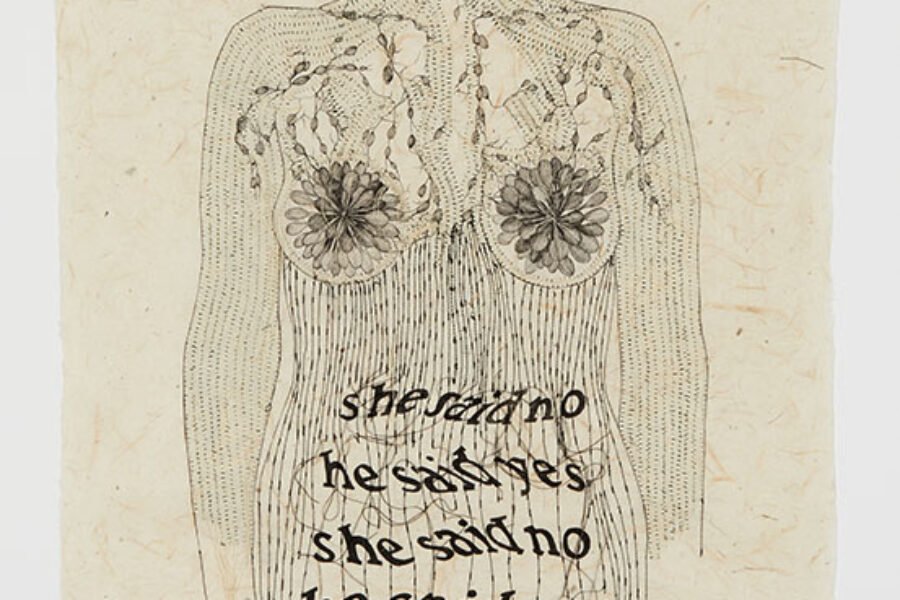 she said no
he said yes
she said no
he said